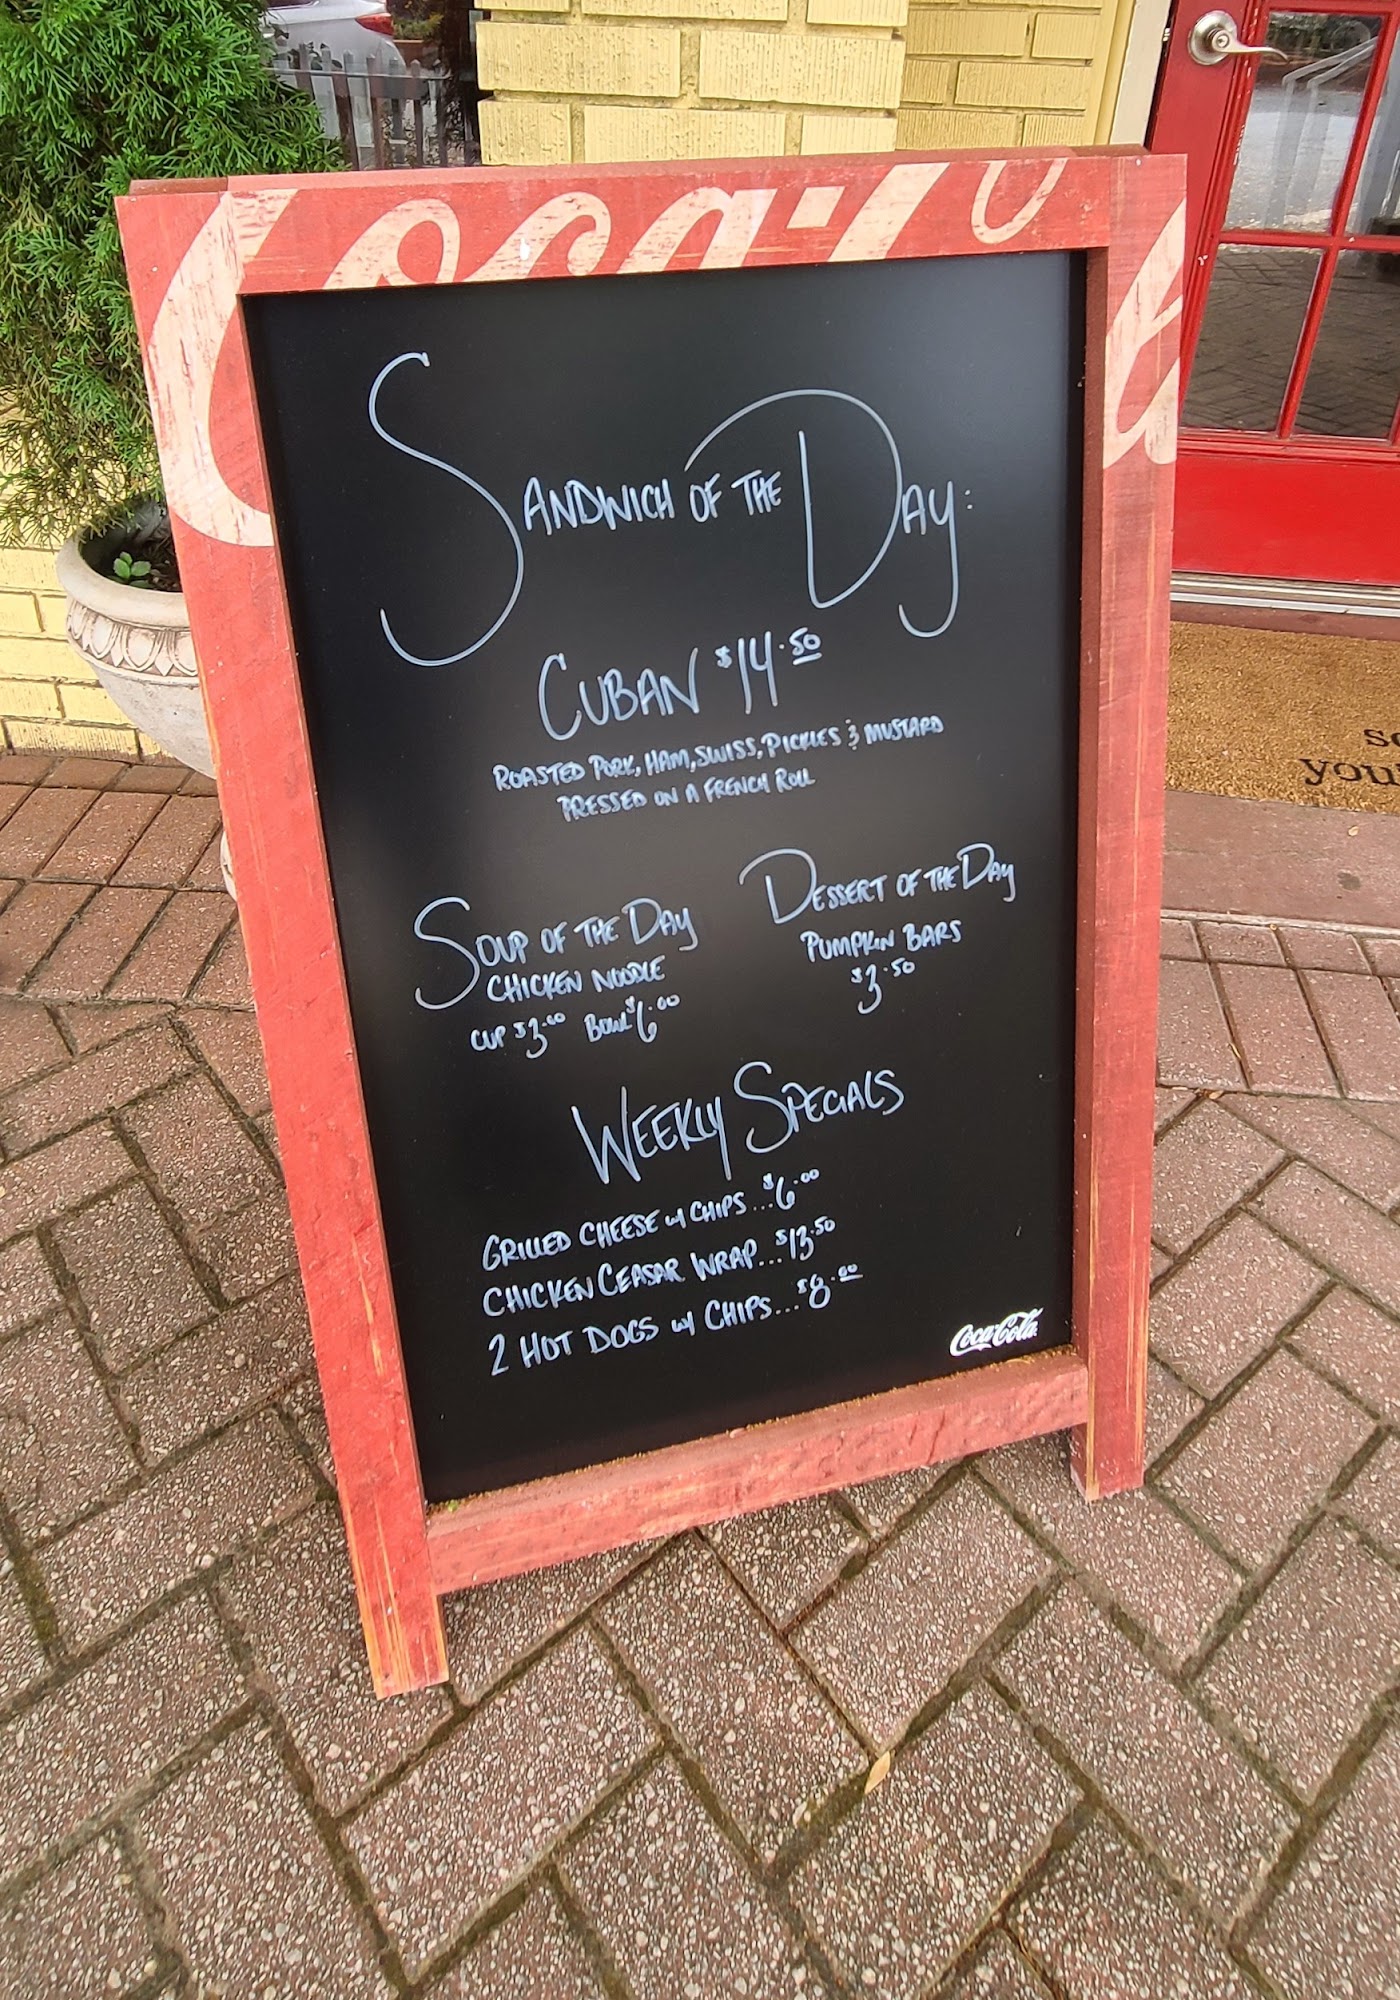 Coca-Co
SANDWICH OF THE DAY:
CUBAN $14.50
ROASTED PORK, HAM, SWISS, PICKLES & MUSTARD
PRESSED ON A FRENCH ROLL
SOUP OF THE DAY
CHICKEN NOODLE
CUP $3.00 BOWL $6.00
DESSERT OF THE DAY
PUMPKIN BARS
$3.50
WEEKLY SPECIALS
GRILLED CHEESE w/ CHIPS...$6.00
CHICKEN CEASAR WRAP...$13.50
2 HOT DOGS w/ CHIPS...$8.00
Coca-Cola